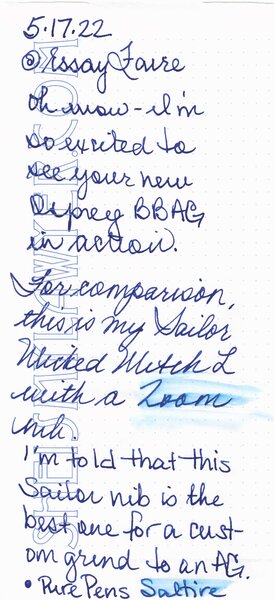 5.17.22
@EssayFaire
Oh wow - I'm
so excited to
see your new
Osprey BBAG
in action.
For comparison,
this is my Sailor
Wicked Witch L
with a Zoom
nib.
I'm told that this
Sailor nib is the
best one for a cust-
om grind to an AG.
• PurePens Saltire